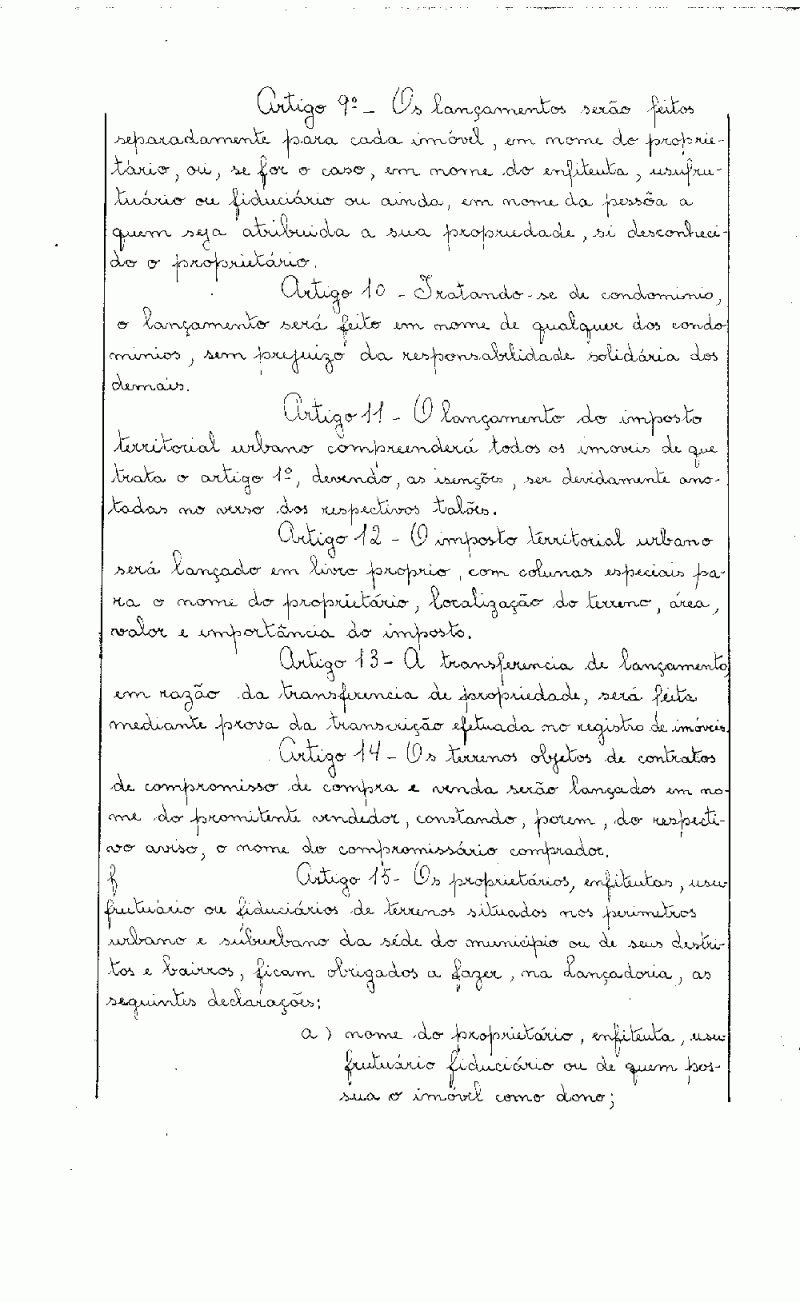 Artigo 9º - Os lançamentos serão feitos
separadamente para cada imóvel, em nome do proprie-
tário, ou, se for o caso, em nome do enfiteuta, usufru-
tuário ou fiduciário ou ainda, em nome da pessôa a
quem seja atribuida a sua propriedade, si desconheci-
do o proprietário.
Artigo 10 - Tratando-se de condominio,
o lançamento será feito em nome de qualquer dos condo
minios, sem prejuizo da responsabilidade solidária dos
demais.
Artigo 11 - O lançamento do imposto
territorial urbano compreenderá todos os imoveis de que
trata o artigo 1º, devendo, as isenções, ser devidamente ano-
tadas no verso dos respectivos talões.
Artigo 12 - O imposto territorial urbano
será lançado em livro proprio, com colunas especiais pa-
ra o nome do proprietário, localização do terreno, área,
valor e importância do imposto.
Artigo 13 - A transferencia de lançamento,
em razão da transferencia de propriedade, será feita
mediante prova da transcrição efetuada no registro de imóveis.
Artigo 14 - Os terrenos objetos de contratos
de compromisso de compra e venda serão lançados em no-
me do promitente vendedor, constando, porem, do respecti-
vo aviso, o nome do compromissário comprador.
f Artigo 15 - Os proprietários, enfiteutas, usu
frutuário ou fiduciários de terrenos situados nos perimetros
urbano e suburbano da séde do municipio ou de seus distri-
tos e bairros, ficam obrigados a fazer, na Lançadoria, as
seguintes declarações:
a) nome do proprietário, enfiteuta, usu
frutuário fiduciário ou de quem pos-
sua o imóvel como dono;